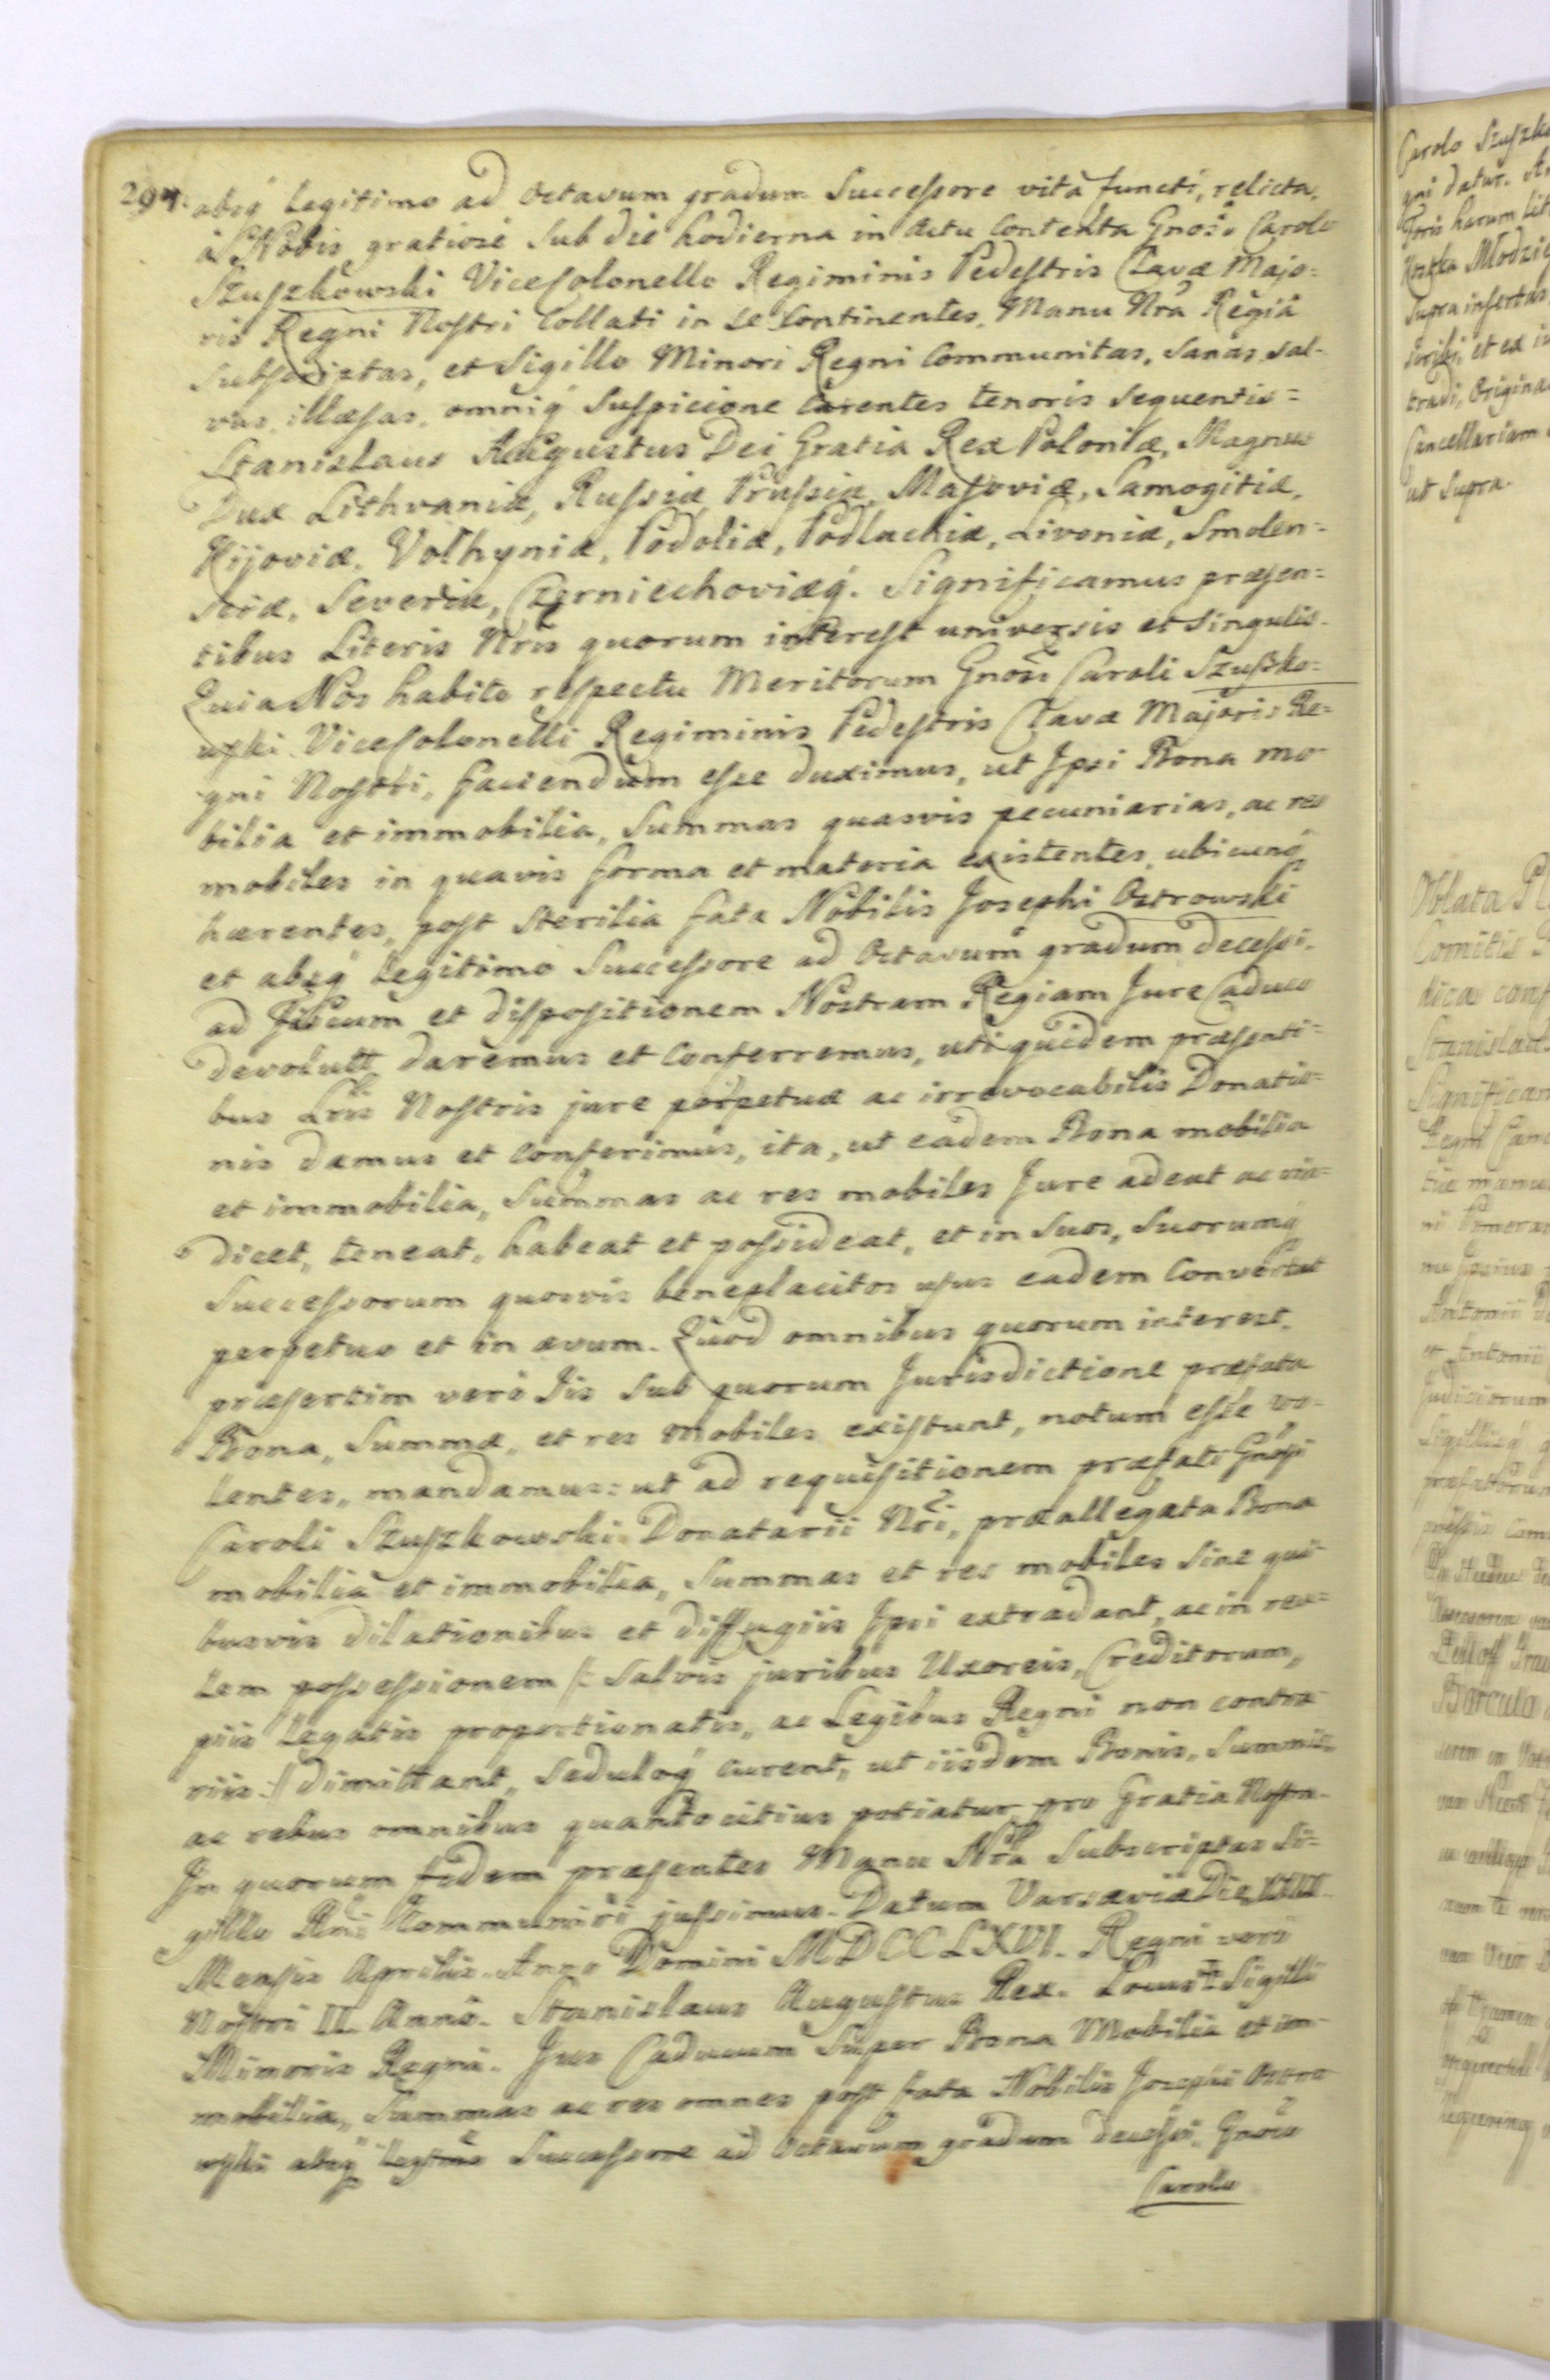 294. absq legitimo ad Octavum gradum Successore vita functi, relicta,
à Nobis gratiose sub die hodierna in Actu contenta Gnoso Carolo
Szuszkowski ViceColonello Regiminis Pedestris Clavæ Majo=
ris Regni Nostri Collati in se Continentes, Manu Nrã Regiâ
subscriptas, et Sigillo Minori Regni Communitas, sanas, sal-
vas, illæsas, omniq Suspicione Carentes tenoris sequentis=
Stanislaus Augustus Dei Gratia Rex Poloniæ, Magnus
Dux Lithvaniæ, Russiæ, Prussiæ, Masoviæ, Samogitiæ,
Kijoviæ, Volhyniæ, Podoliæ, Podlachiæ, Livoniæ, Smolen=
sciæ, Severiæ, Czerniechoviæq. Significamus præsen=
tibus Literis Nris quorum interest universis et singulis.
Quia Nos habito respectu Meritorum Gnosi Caroli Szuszko=
wski ViceColonelli Regiminis Pedestris Clavæ Majoris Re=
gni Nostri, faciendum esse duximus, ut Ipsi Bona mo
bilia et immobilia, Summas quasvis pecuniarias, ac res
mobiles in quavis forma et materia existentes, ubicunq
hærentes, post sterilia fata Nobilis Josephi Ostrowski
et absq legitimo Successore ad Octavum gradum decessi,
ad Fiscum et dispositionem Nostram Regiam Jure Caduco
devoluta daremus et Conferremus, uti quidem præsenti=
bus Lris Nostris jure perpetuæ ac irrevocabilis Donatio=
nis damus et Conferimus, ita, ut eadem Bona mobilia
et immobilia, Summas ac res mobiles Jure adeat ac vin=
dicet, teneat, habeat et possideat, et in Suos, Suorumq
Successorum quosvis beneplacitos usus eadem Convertat
perpetuo et in ævum. Quod omnibus quorum interest,
præsertim verò Iis sub quorum Jurisdictione præfata
Bona, Summæ, et res mobiles existunt, notum esse vo=
lentes, mandamus: ut ad requisitionem præfati Gnosi
Caroli Szuszkowski Donatarii Nri, præallegata Bona
mobilia et immobilia, Summas et res mobiles sine qui
busvis dilationibus et diffugiis Ipsi extradant, ac in rea=
lem possessionem /: Salvis juribus Uxoreis, Creditorum,
piis Legatis proportionatis, ac Legibus Regni non contra
riis :/ dimittant, seduloq curent, ut iisdem Bonis, Summis
ac rebus omnibus quanto citius potiatur pro Gratia Nostra.
In quorum fidem præsentes Manu Nrã Subscriptas Si=
gillo Rni Communiri jussimus. Datum Varsaviæ Die
Mensis Aprilis. Anno Domini MDCCLXVI. Regni vero
Nostri II. Anno. Stanislaus Augustus Rex. Locus Sigilli
Minoris Regni. Jus Caducum Super Bona Mobilia et im-
mobilia, Summas ac res omnes post fata Nobilis Josephi Ostro
wski absq legitimo Successore ad Octavum gradum decessi, Gnoso
Carolo
Carolo
gni datur.
harum
supra insertas
scribi, et ex
tradi, Origina
Cancellariam
ut Supra.
Oblata
Comitis
Stanislaus
Significam